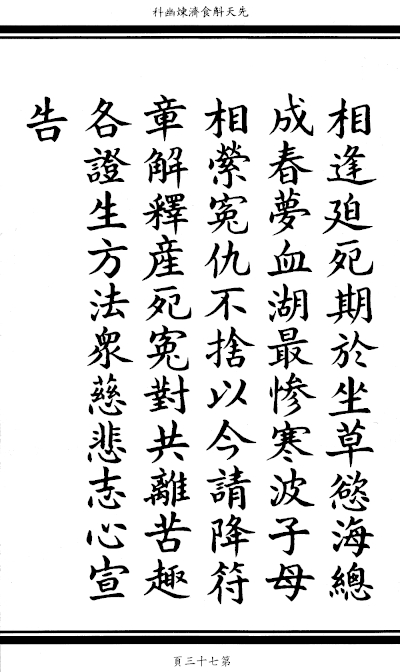 先天斛食濟煉幽科
相逢廹死期於坐草慾海總
成春夢血湖最惨寒波子母
相縈寃仇不捨以今請降符
章解釋産死寃對共離苦趣
各證生方法衆慈悲志心宣
告
第七十三頁